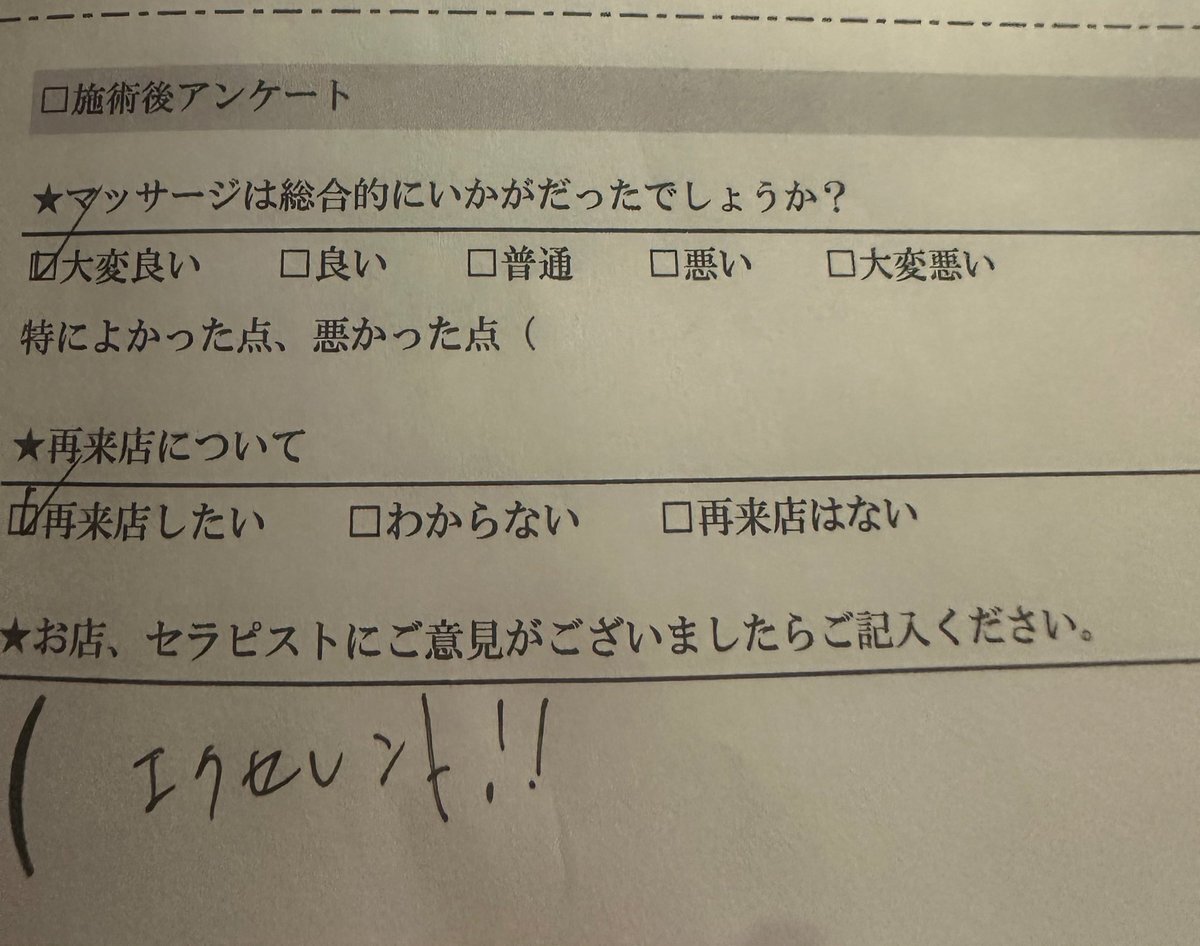 □施術後アンケート
★マッサージは総合的にいかがだったでしょうか？
☑大変良い □良い □普通 □悪い □大変悪い
特によかった点、悪かった点（
★再来店について
☑再来店したい □わからない □再来店はない
★お店、セラピストにご意見がございましたらご記入ください。
（ エクセレント!!